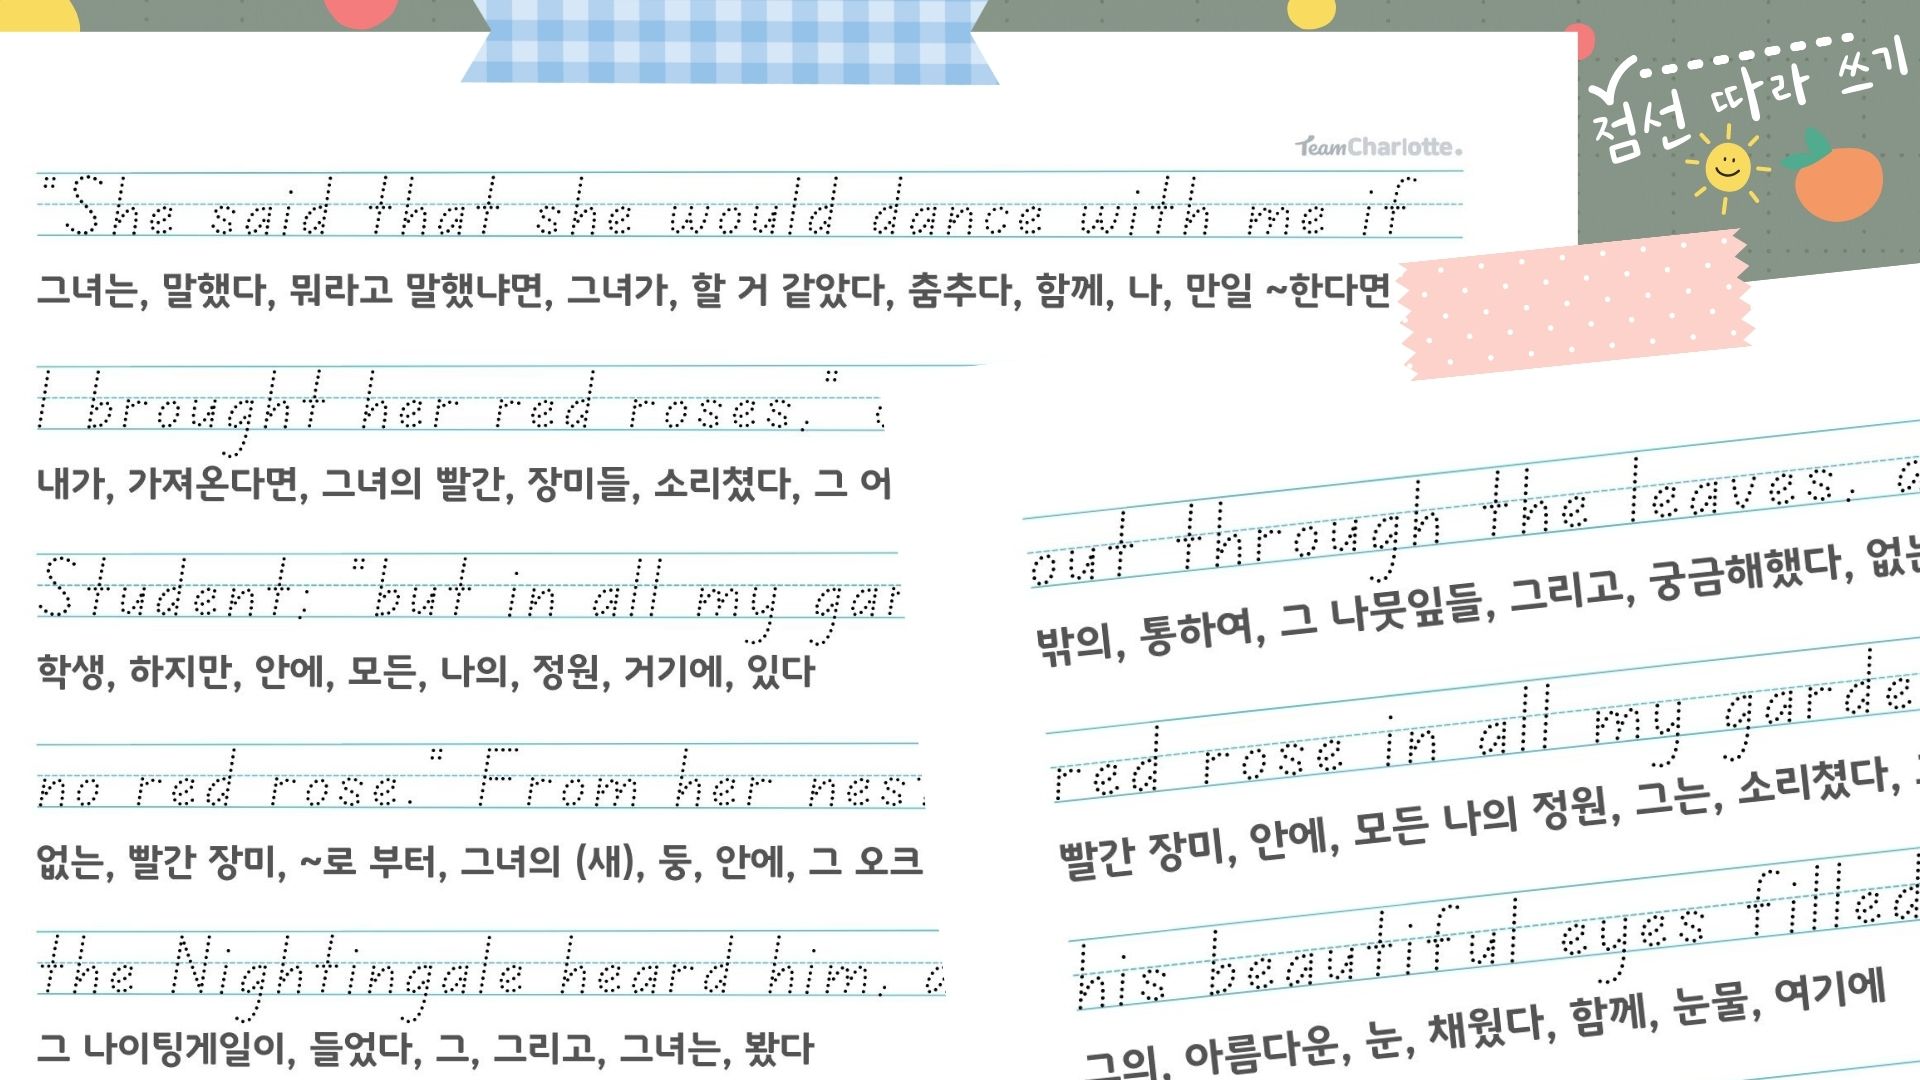 점선 따라 쓰기
TeamCharlotte.
"She said that she would dance with me if
그녀는, 말했다, 뭐라고 말했냐면, 그녀가, 할 거 같았다, 춤추다, 함께, 나, 만일 ~한다면
I brought her red roses,"
내가, 가져온다면, 그녀의 빨간, 장미들, 소리쳤다, 그 어
Student; "but in all my gar
학생, 하지만, 안에, 모든, 나의, 정원, 거기에, 있다
no red rose." From her nes
없는, 빨간 장미, ~로 부터, 그녀의 (새), 둥, 안에, 그 오크
the Nightingale heard him,
그 나이팅게일이, 들었다, 그, 그리고, 그녀는, 봤다
out through the leaves,
밖의, 통하여, 그 나뭇잎들, 그리고, 궁금해했다, 없는
red rose in all my garde
빨간 장미, 안에, 모든 나의 정원, 그는, 소리쳤다,
his beautiful eyes filled
그의, 아름다운, 눈, 채웠다, 함께, 눈물, 여기에